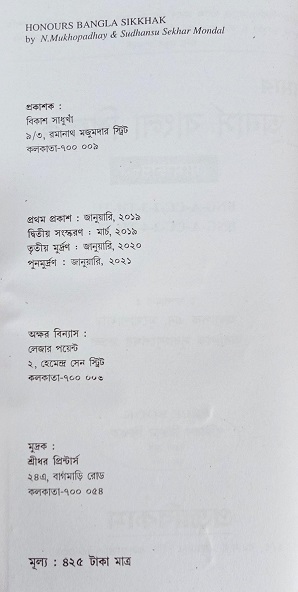 HONOURS BANGLA SIKKHAK
by N.Mukhopadhay & Sudhansu Sekhar Mondal
প্রকাশক :
বিকাশ সাধুখাঁ
৯/৩, রমানাথ মজুমদার স্ট্রিট
কলকাতা-৭০০ ০০৯
প্রথম প্রকাশ : জানুয়ারি, ২০১৯
দ্বিতীয় সংস্করণ : মার্চ, ২০১৯
তৃতীয় মুর্দ্রণ : জানুয়ারি, ২০২০
পুনমুর্দ্রণ : জানুয়ারি, ২০২১
অক্ষর বিন্যাস :
লেজার পয়েন্ট
২, হেমেন্দ্র সেন স্ট্রিট
কলকাতা-৭০০
মুদ্রক :
শ্রীধর প্রিন্টার্স
২৪এ, বাগমাড়ি রোড
কলকাতা-৭০০ ০৫৪
মূল্য : ৪২৫ টাকা মাত্র